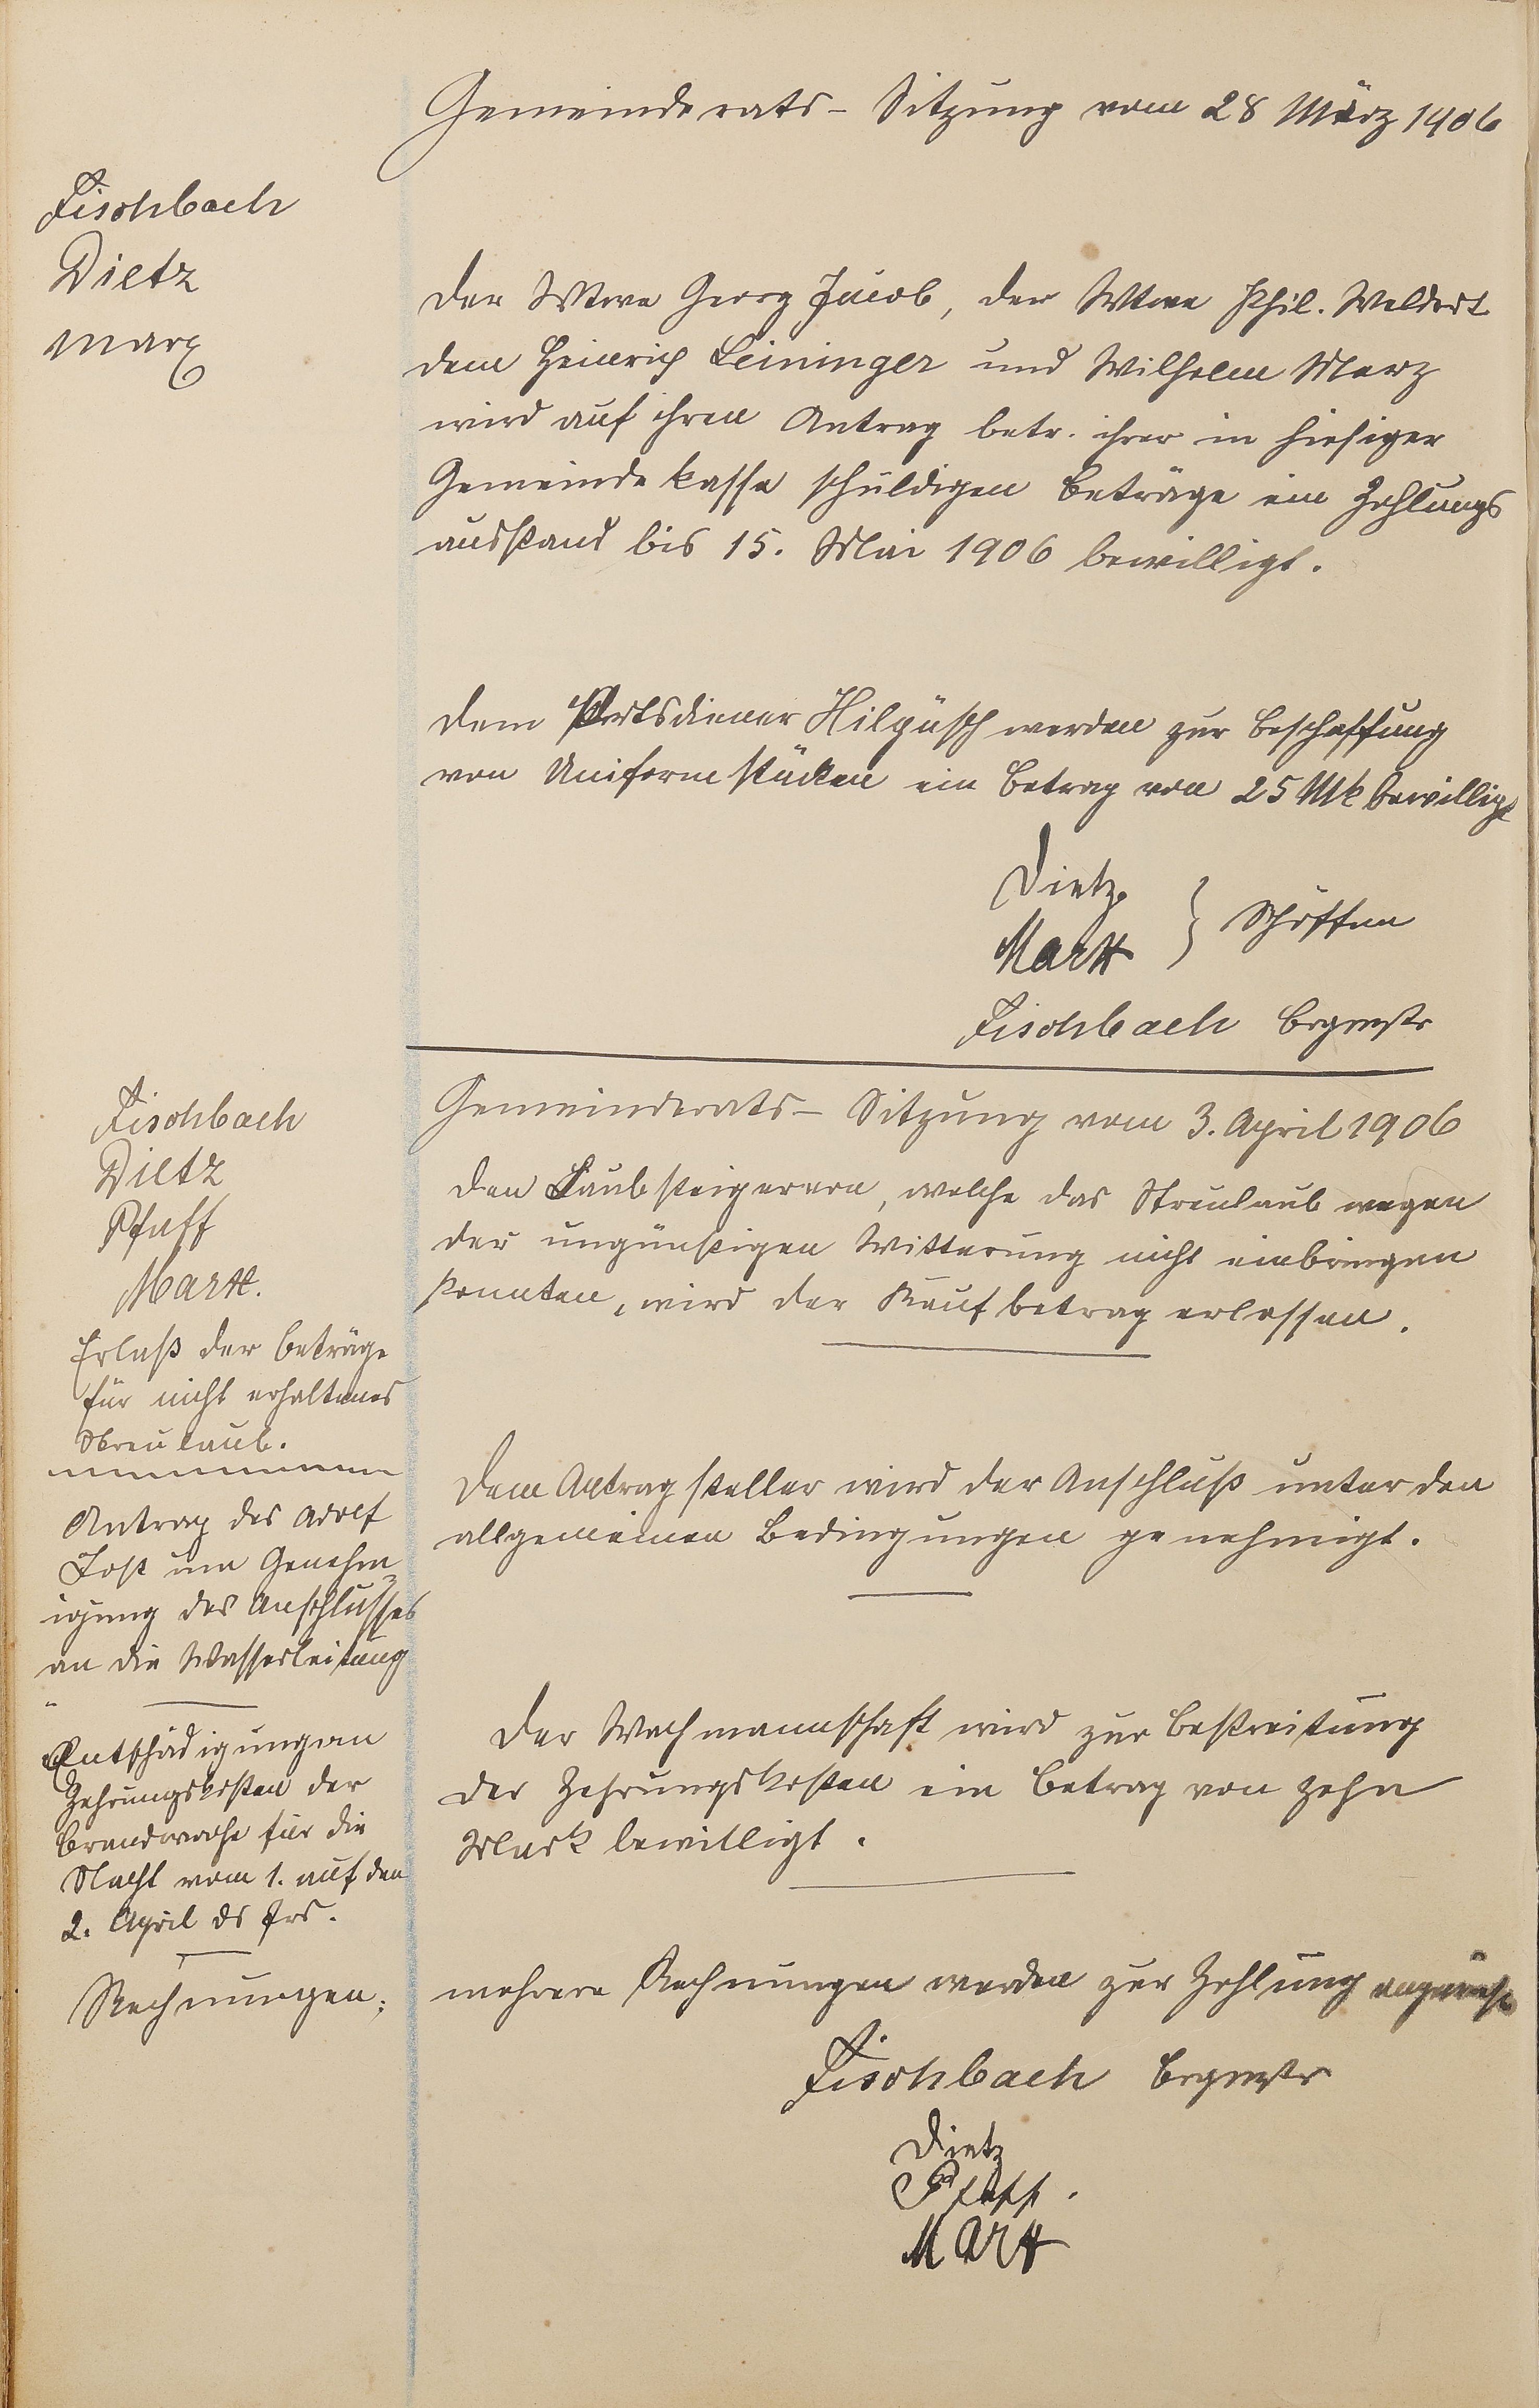 Gemeinderats-Sitzung vom 28 März 1906
Fischbach
Dietz
Marx
Der Wtwe Georg Jacob, der Wtwe Phil. Weldert
dem Heinrich Leininger und Wilhelm Merz
wird auf ihren Antrag betr. ihrer in hiesiger
Gemeindekasse schuldigen Beträge ein Zahlungs
ausstand bis 15. Mai 1906 bewilligt.
Dem Ortsdiener Hilgüsch werden zur Beschaffung
von Uniformstücken ein Betrag von 25 Mk bewilligt
Dietz
Marx } Schöffen
Fischbach Brgmstr
Gemeinderats-Sitzung vom 3. April 1906
Fischbach
Dietz
Pfaff
Marx.
Erlaß der Beträge
für nicht erhaltenes
Streulaub.
Den Laubsteigerern, welche das Streulaub wegen
der ungünstigen Witterung nicht einbringen
konnten, wird der Kaufbetrag erlassen.
Antrag des Adolf
Jost um Genehm=
igung des Anschlusses
an die Wasserleitung
Dem Antragsteller wird der Anschluß unter den
allgemeinen Bedingungen genehmigt.
Entschädigung an
Zehrungskosten der
Brandwache für die
Nacht vom 1. auf den
2. April ds Jrs.
Der Wachmannschaft wird zur Bestreitung
der Zehrungskosten ein Betrag von zehn
Mark bewilligt.
Rechnungen;
mehrere Rechnungen werden zur Zahlung
Fischbach Brgmstr
Dietz
Pfaff.
Marx